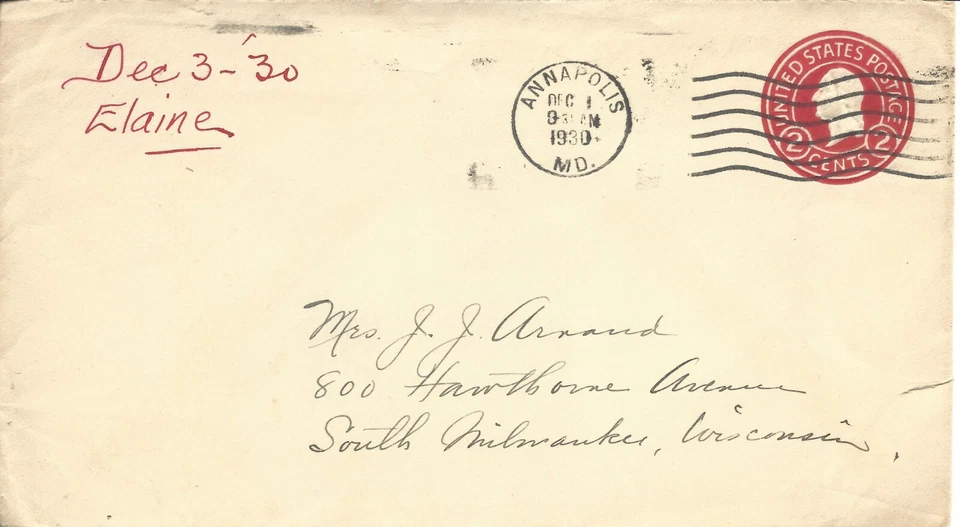 Dec 3-'30
Elaine
ANNAPOLIS
DEC 1
AM
1930
MD.
UNITED STATES POSTAGE
2 CENTS 2
Mrs. J. J. Arnaud
800 Hawthorne Avenue
South Milwaukee, Wisconsin,